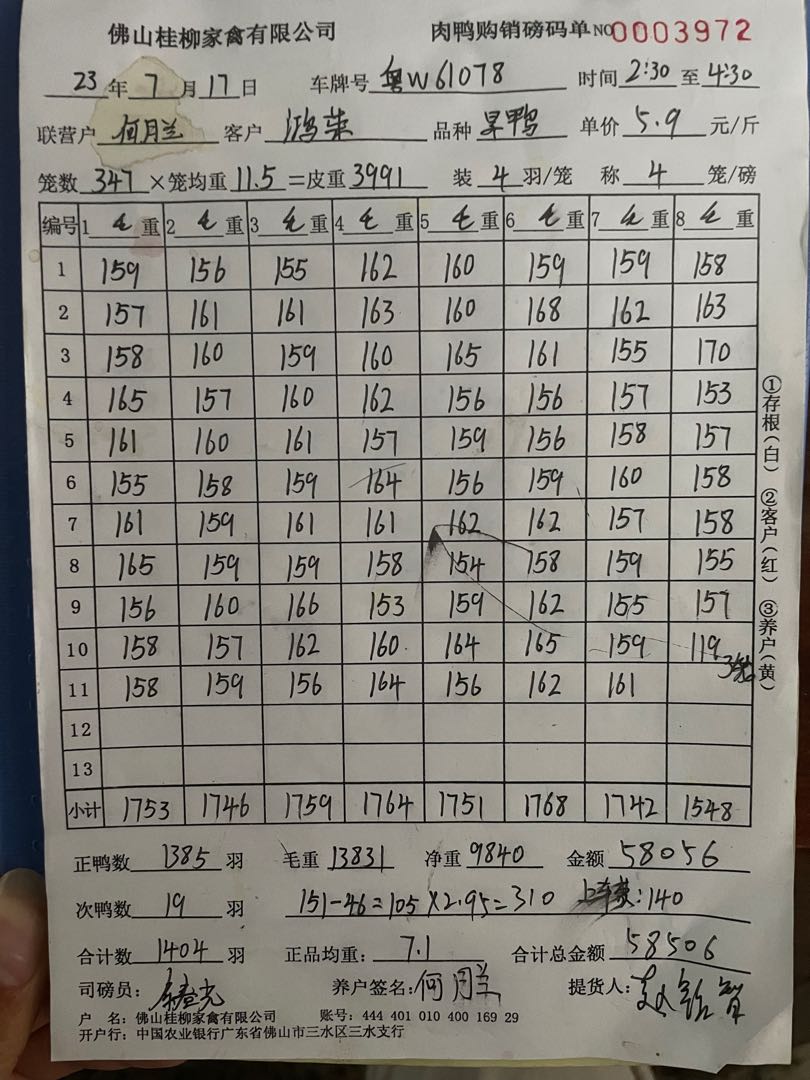 佛山桂柳家禽有限公司 肉鸭购销磅码单 NO 0003972
23年7月17日 车牌号 粤W61078 时间 2:30 至 4:30
联营户 何月兰 客户 鸿荣 品种 旱鸭 单价 5.9 元/斤
笼数 347 ×笼均重 11.5 =皮重 3991 装 4 羽/笼 称 4 笼/磅
编号 1 毛 重 2 毛 重 3 毛 重 4 毛 重 5 毛 重 6 毛 重 7 毛 重 8 毛 重
1 159 156 155 162 160 159 159 158
2 157 161 161 163 160 168 162 163
3 158 160 159 160 165 161 155 170
4 165 157 160 162 156 156 157 153
5 161 160 161 157 159 156 158 157
6 155 158 159 164 156 159 160 158
7 161 159 161 161 162 162 157 158
8 165 159 159 158 154 158 159 155
9 156 160 166 153 159 162 155 157
10 158 157 162 160 164 165 159 119
3笼
11 158 159 156 164 156 162 161
12
13
小计 1753 1746 1759 1764 1751 1768 1742 1548
正鸭数 1385 羽 毛重 13831 净重 9840 金额 58056
次鸭数 19 羽 151-46=105×2.95=310 上车费:140
合计数 1404 羽 正品均重: 7.1 合计总金额 58506
司磅员: 养户签名: 何月兰 提货人:
户 名: 佛山桂柳家禽有限公司 账号: 444 401 010 400 169 29
开户行: 中国农业银行广东省佛山市三水区三水支行
①存根(白) ②客户(红) ③养户(黄)